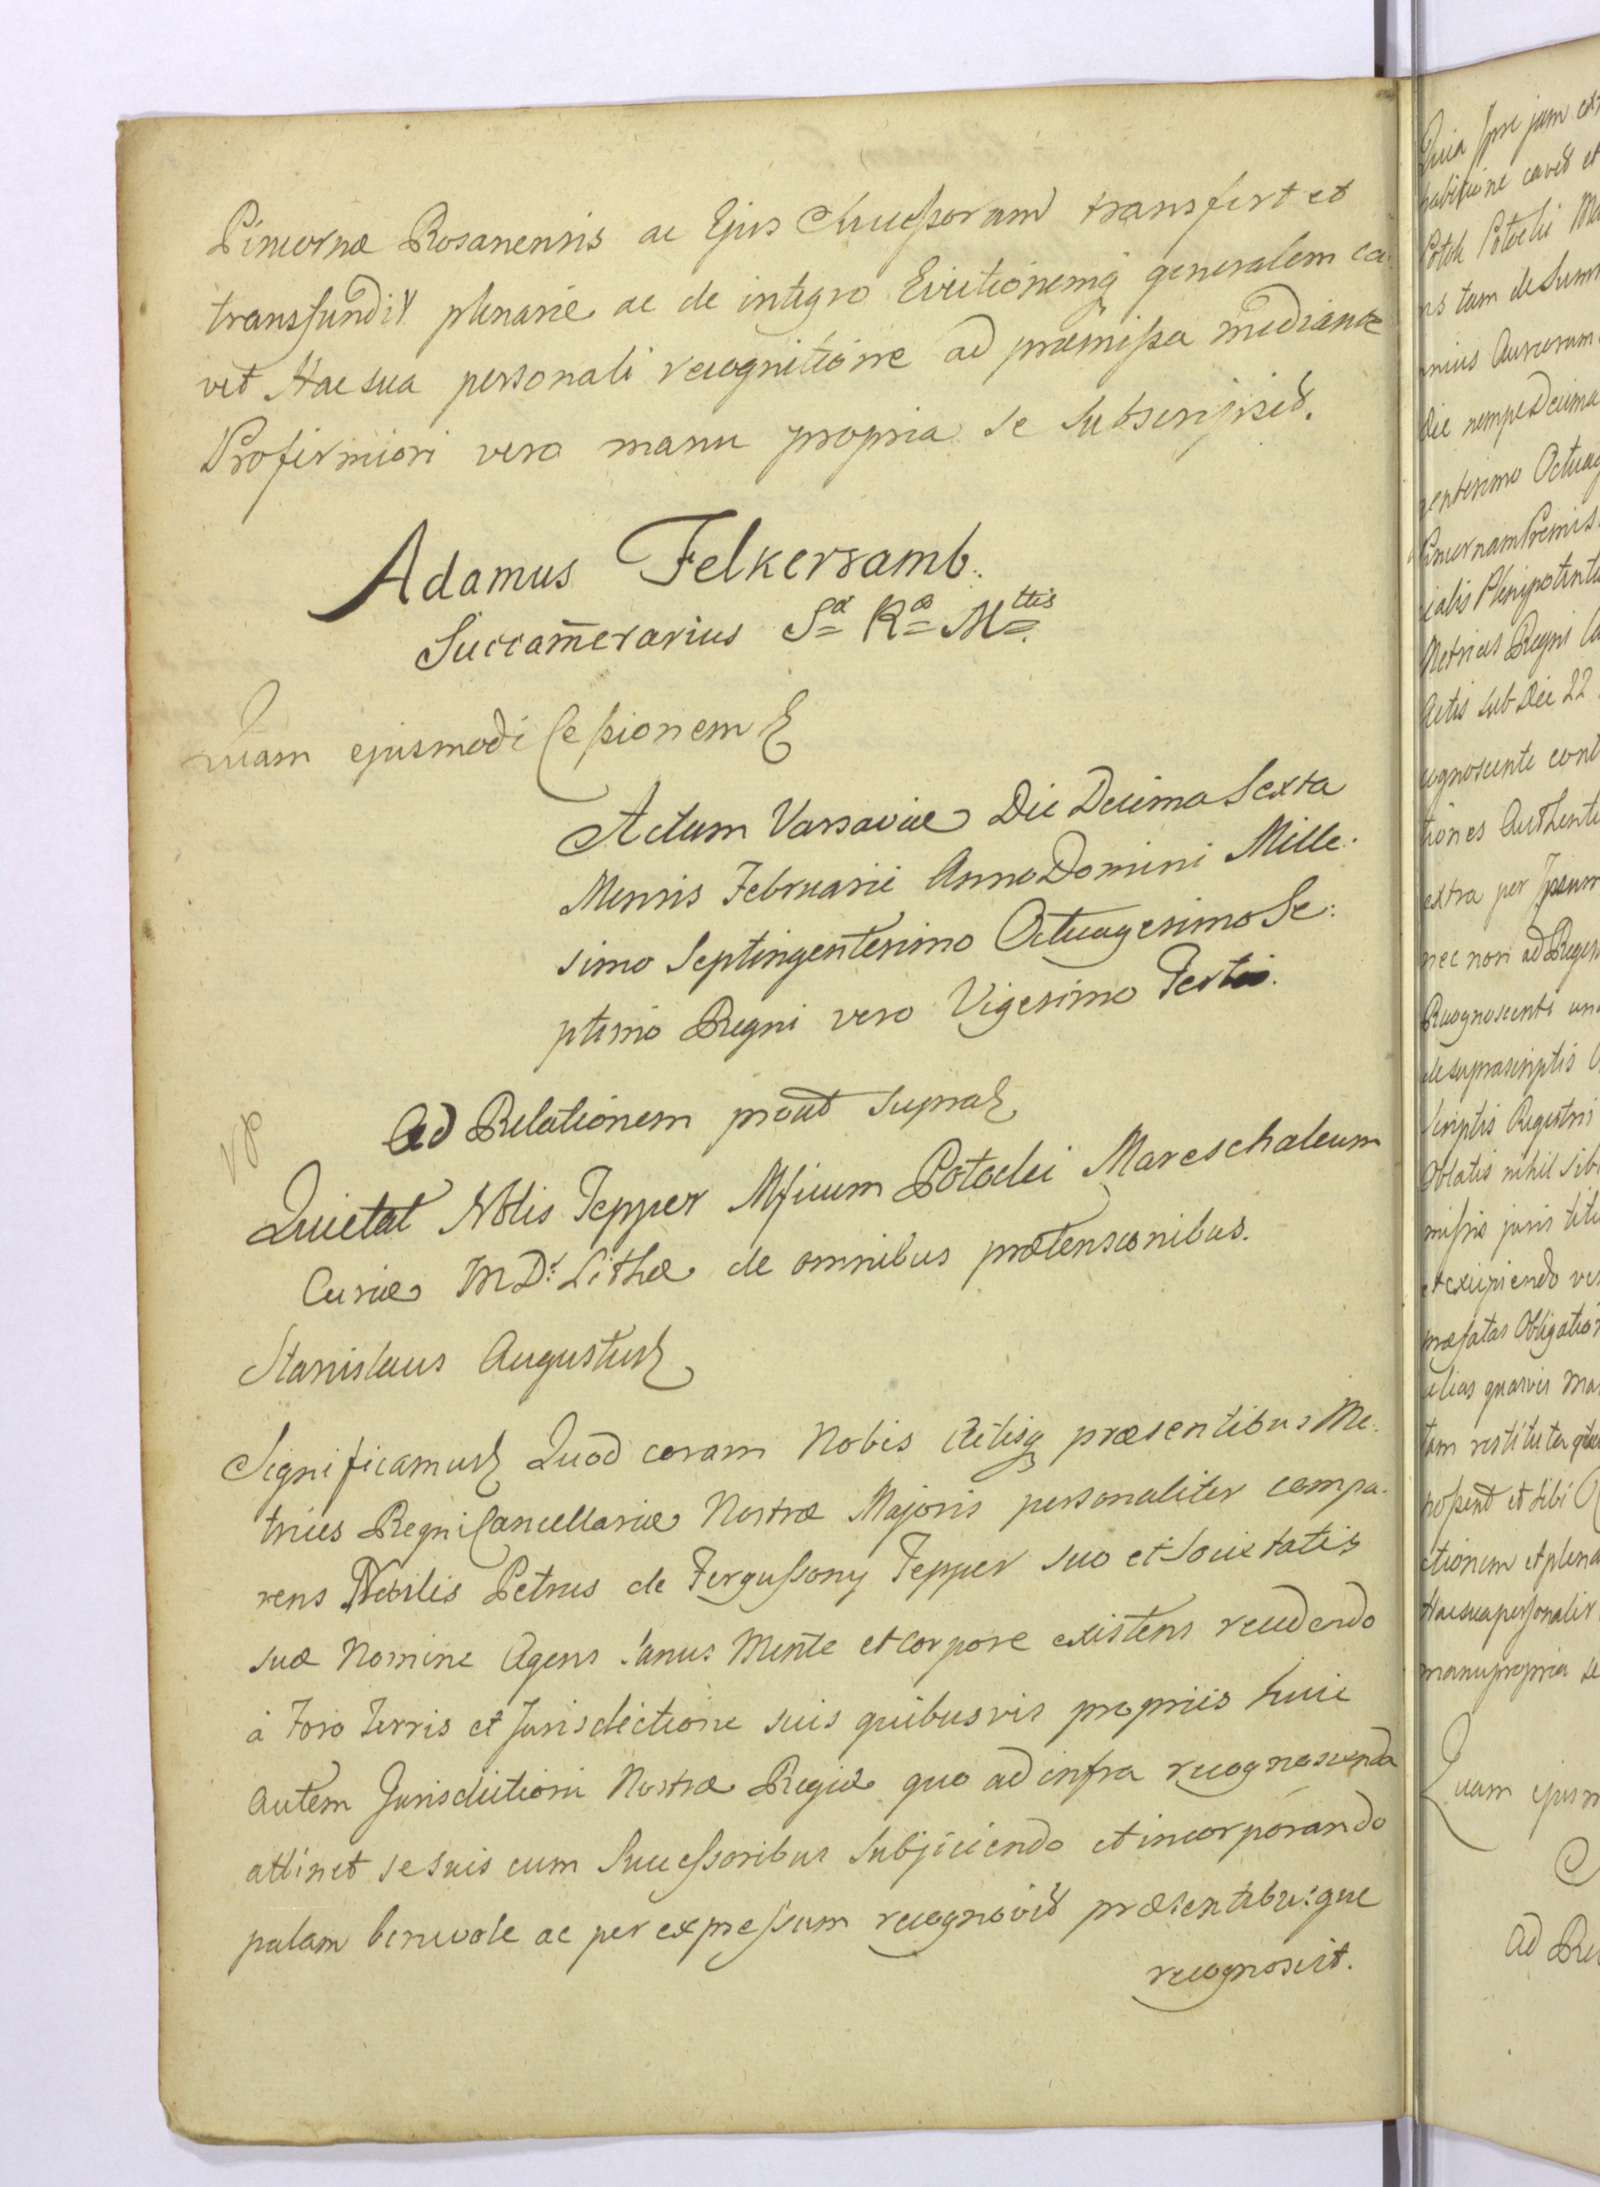 Pincernæ Rosanensis ac Ejus Successorum transfert et
transfundit plenarie ac de integro Evictionemq generalem ca:
vet Hac sua personali recognitione ad præmissa mediante
Pro firmiori vero manu propria se subscripsit.
Adamus Felkersamb.
Succamerarius Sæ Ræ Mttis
Quam ejusmodi Cessionem &
Actum Varsaviæ Die Decima Sexta
Mensis Februarii Anno Domini Mille:
simo Septingentesimo Octuagesimo Se:
ptimo Regni vero Vigesimo Tertio.
Ad Relationem prout supra &
Quietat Nblis Tepper Mficum Potocki Mareschalcum
Curiæ M D. Lithæ de omnibus prætensionibus.
Stanislaus Augustus &
Significamus & Quod coram Nobis Actisq præsentibus Me:
trices Regni Cancellariæ Nostræ Majoris personaliter compa:
rens Nobilis Petrus de Fergussony Tepper suo et Societatis
suæ Nomine Agens sanus Mente et Corpore existens recedendo
à Foro Terris et Jurisdictione suis quibusvis propriis huic
autem Jurisdictioni Nostræ Regiæ quo ad infra recognoscenda
attinet se suis cum Successoribus subjiciendo et incorporando
palam benevole ac per expressum recognovit præsentibusque
recognoscit.
Quia Ipse jam
habitione cavet et
Potok Potocki
tam de Summ
Aureorum
die nempe Decima
gentesimo Octuag
Pincernam Præmis
cialis Plenipotent
Metrices Regni Ca
Actis sub Die 22
cognoscente cont
tiones Authenti
extra per Ipsum
nec non ad Reges
Recognoscenti
de suprascriptis
Scriptis Registri
Oblatis nihil sibi
missis juris titu
et excipiendo
præfatas Obligatio
alias quasvis
tam restituta
possent et sibi
ctionem et plena
Hac sua personali
manu propria se
Quam ejusm
Ad Re